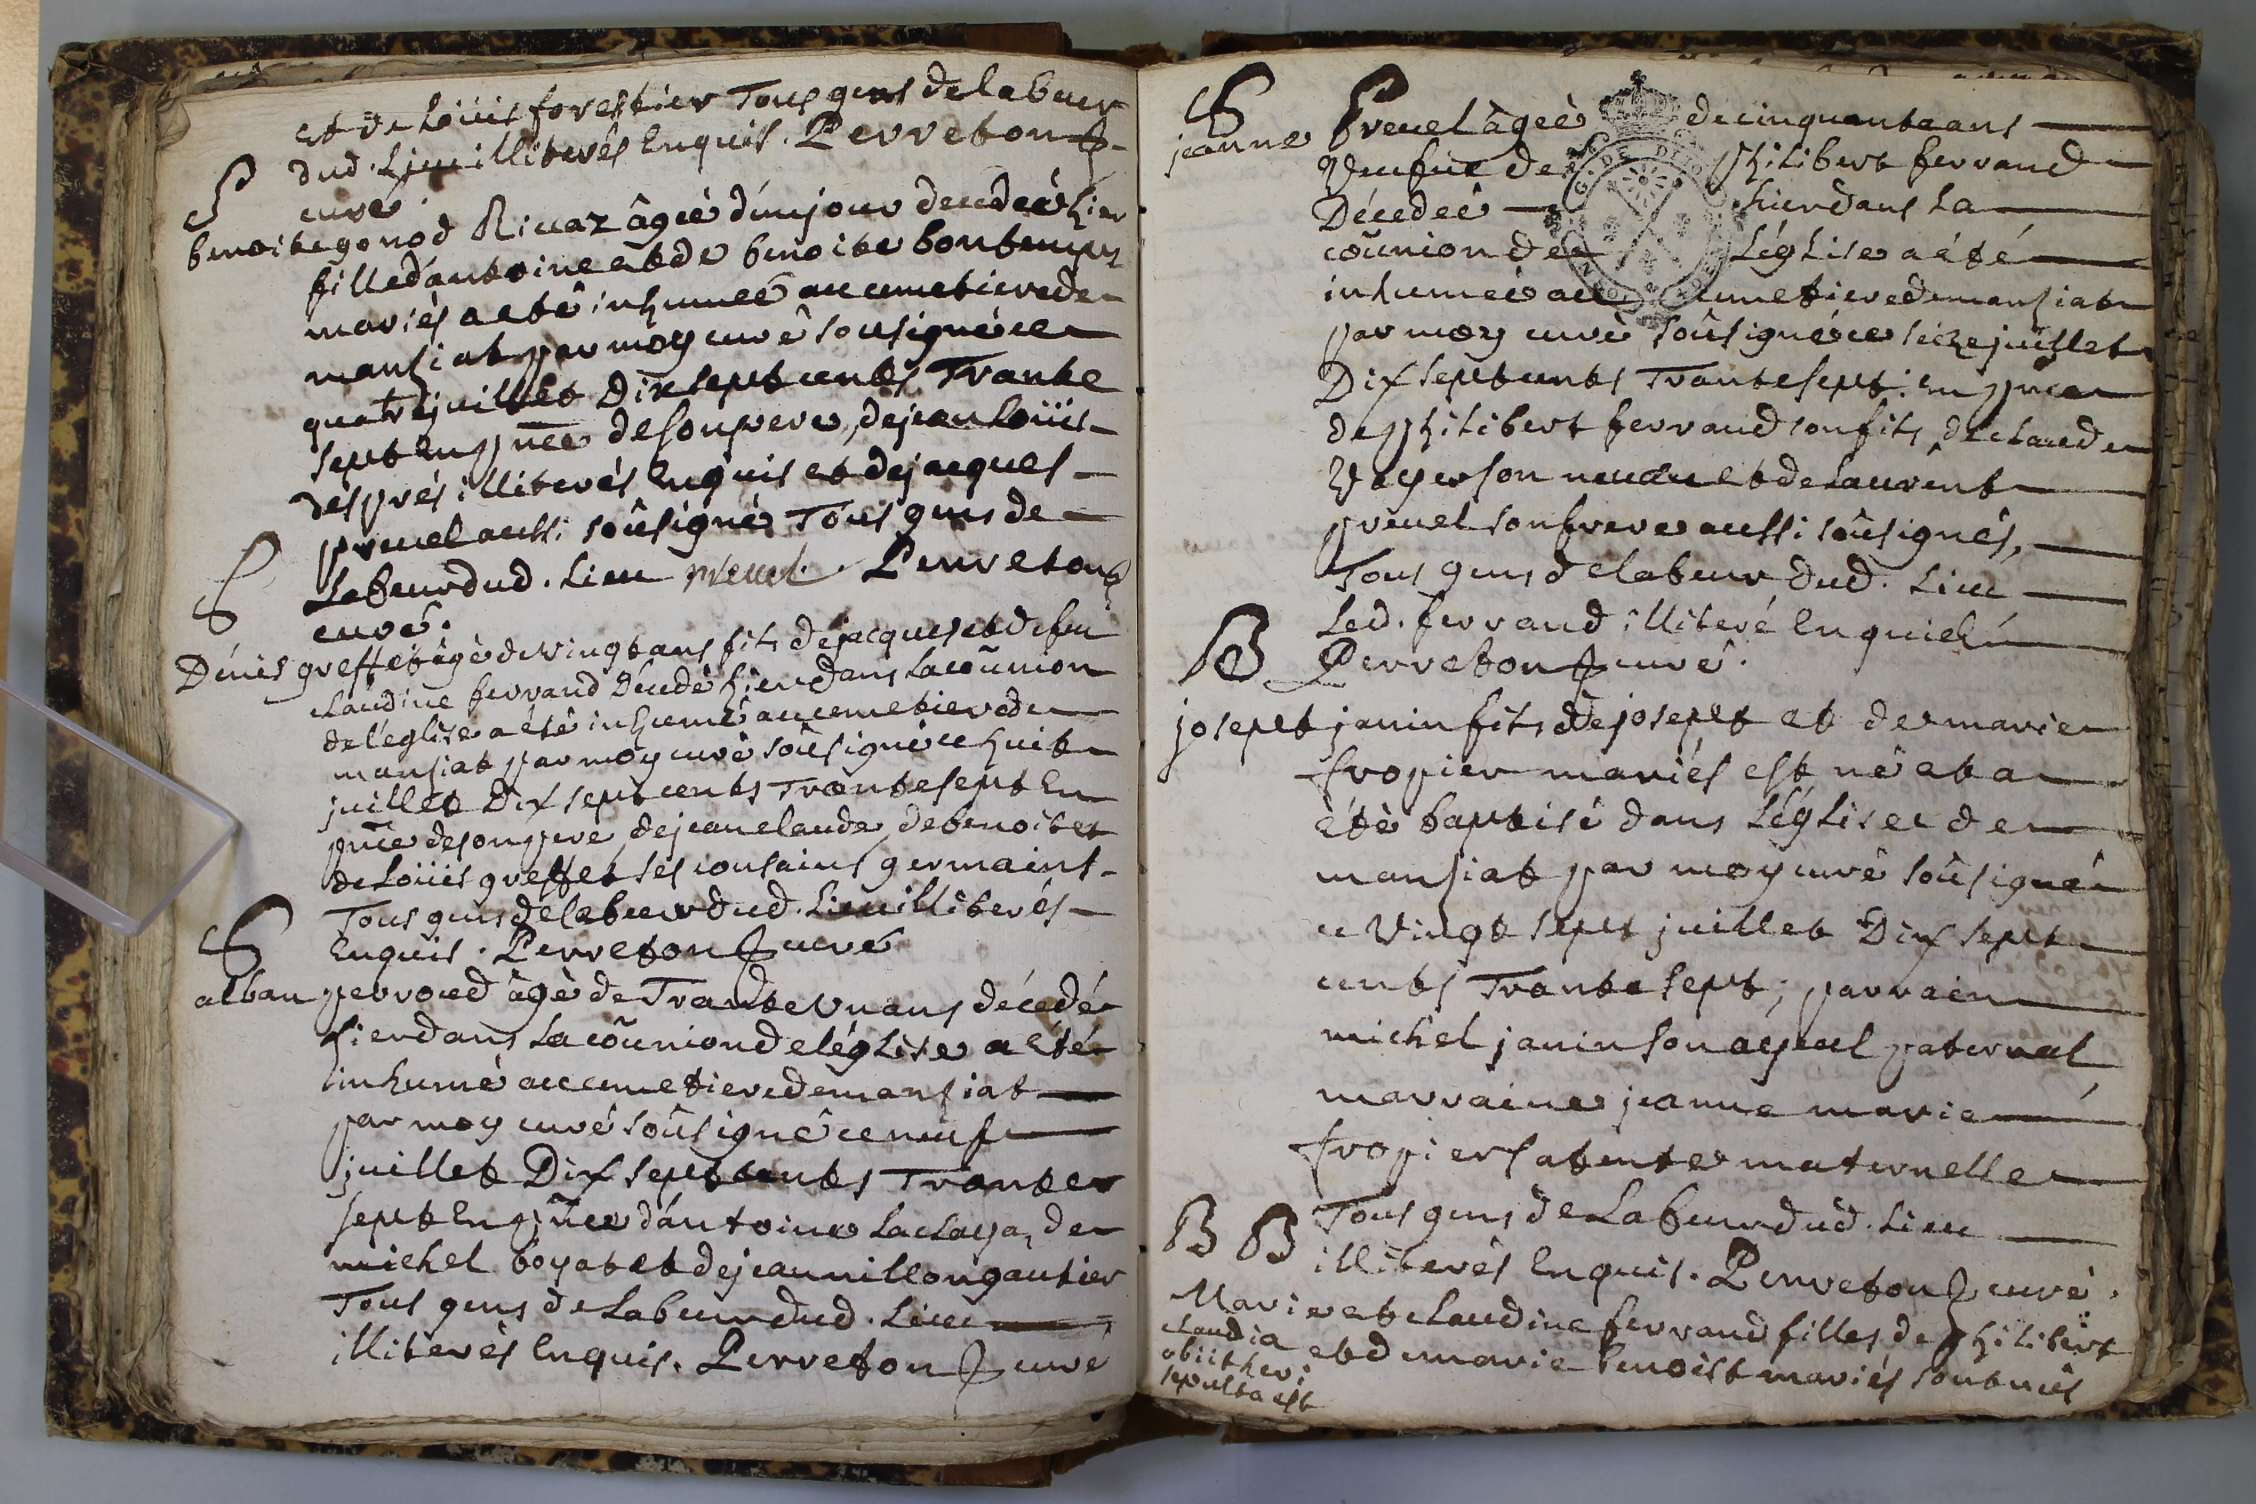 et de Loüis forestier Tous gens de labeur
dud. Lieu illiterés Enquis. Perreton
curé.
S
benoite gonod Rivaz âgeé d'un jour decedeé hier
fille d'antoine et de benoite bontemps
mariés a eté inhumeé au cemetiere de
mansiat par moy curé soûsigné ce
quatre juillet Dix sept cents Trante
sept En pñce de son pere, de jean Loüis
després illiterés Enquis et de jacques
preuel aussi soûsigné Tous gens de
Labeur dud. Lieu preuel. Perreton
curé.
S
Dénis greffet âgé de vingt ans fils de jacques et de feu
claudine ferrand Décedé hier dans la coũnion
de l'église a eté inhumé au cemetiere de
mansiat par moy curé soûsigné ce huit
juillet Dix sept cents Trante sept En
pñce de son pere, de jean claude, de benoit et
de Loüis greffet ses cousains germains
Tous gens de labeur dud. Lieu illiterés
Enquis. Perreton curé
S
alban perroud âgé de Trante Un ans décedé
hier dans la coũnion de l'église a eté
inhumé au cemetiere de mansiat
par moy curé soûsigné ce neuf
juillet Dix sept cents Trante
sept En pñce d'antoine Laclaya, de
michel boyat et de jean millon gautier
Tous gens de Labeur dud. Lieu
illiterés Enquis. Perreton curé
S
jeanne Preuel âgeé de cinquante ans
Veufue de philibert ferrand
Décedeé hier dans la
coũnion de L'église a eté
inhumeé au cemetiere de mansiat
par moy curé soûsigné ce seize juillet
Dix sept cents Trante sept: en pñce
de philibert ferrand son fils, de claude
Vayerson neueu et de Laurent
preuel son frere aussi soûsignés,
Tous gens de labeur dud. Lieu
Led. ferrand illiteré Enquis
Perreton curé.
B
josept janin fils de josept et de marie
fropier mariés est né et a
eté baptisé dans L'église de
mansiat par moy curé soûsigné
ce Vingt sept juillet Dix sept
cents Trante sept; parrain
michel janin son ayeul paternel
marraine jeanne marie
fropier sa tente maternelle
Tous gens de Labeur dud. Lieu
illiterés Enquis. Perreton curé.
B B
Marie et claudine ferrand filles de philibert
et de marie benoist mariés sont neés
claudia
obiit heri
sepulta est